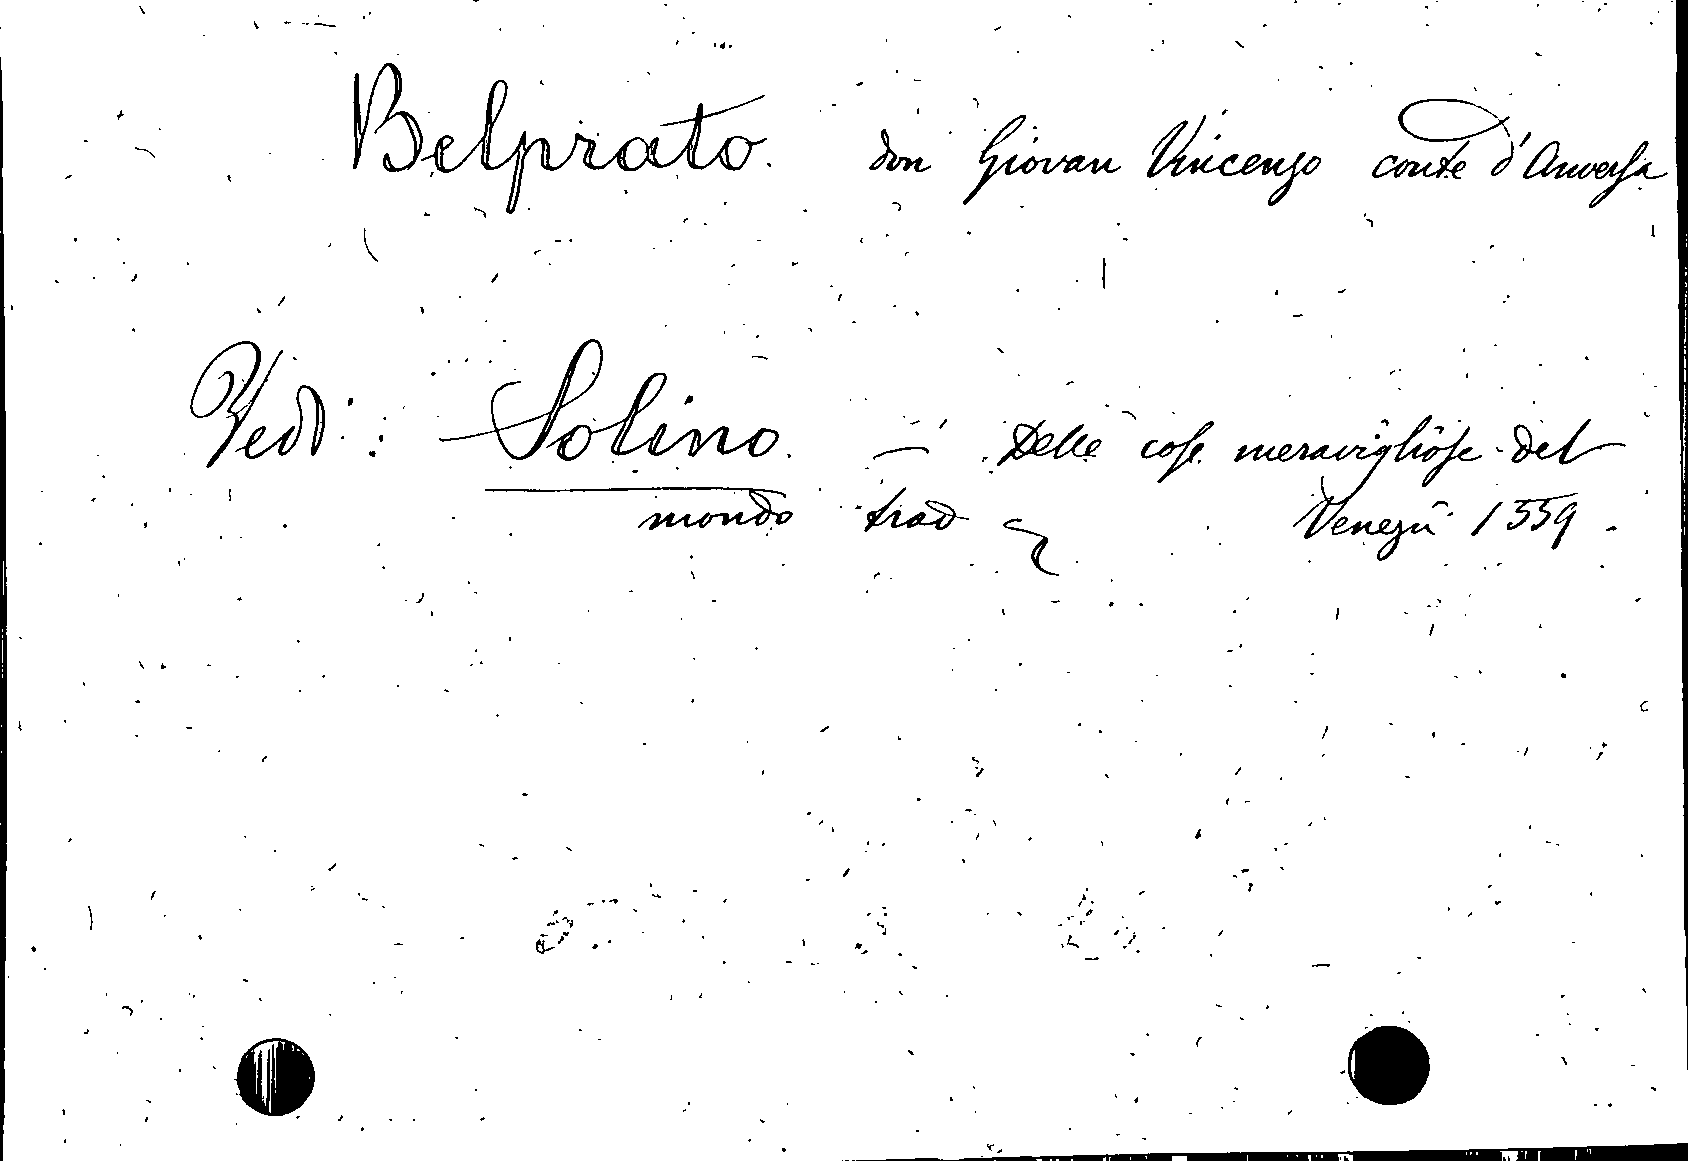 Belprato. don Giovan Vincenzo conte d'Anversa
Vedi: Solino. — Delle cose meravigliose del
mondo trad Venezia 1559.